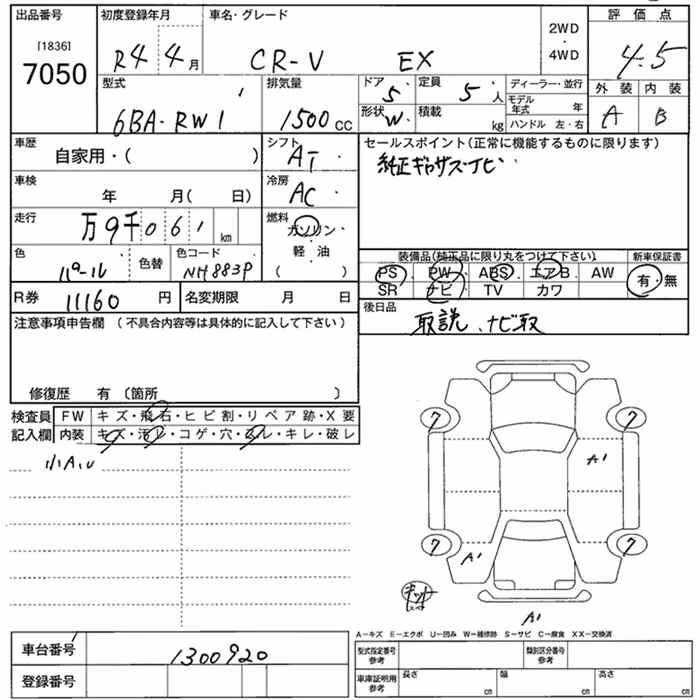 出品番号 初度登録年月 車名・グレード 2WD ・ 4WD 評価点
[1836]
7050 R4 4月 CR-V EX 4.5
型式 排気量 ドア 5 定員 5人 ディーラー・並行 外装 内装
6BA-RW1 1500cc 形状 W 積載 kg モデル年式 年 A B
ハンドル 左・右
車歴 自家用・( ) シフト AT セールスポイント(正常に機能するものに限ります)
車検 年 月( 日) 冷房 AC
走行 万9千061km 燃料 ガソリン
軽・油
( )
色 パール 色替 色コード NH883P 装備品(純正品に限り丸をつけて下さい) 新車保証書
PS PW ABS エアB AW 有・無
SR ナビ TV カワ
R券 11160円 名変期限 月 日 後日品
取説、ナビ取
注意事項申告欄 (不具合内容等は具体的に記入して下さい)
修復歴 有(箇所 )
検査員 FW キズ・飛石・ヒビ割・リペア跡・X要
記入欄 内装 キズ・汚レ・コゲ・穴・スレ・キレ・破レ
7 7
A1
7 7
A1
キット
A1
A−キズ E−エクボ U−凹み W−補修跡 S−サビ C−腐食 XX−交換済
車台番号 1300920 型式指定番号 参考 類別区分番号 参考
登録番号 車庫証明用 参考 長さ cm 幅 cm 高さ cm